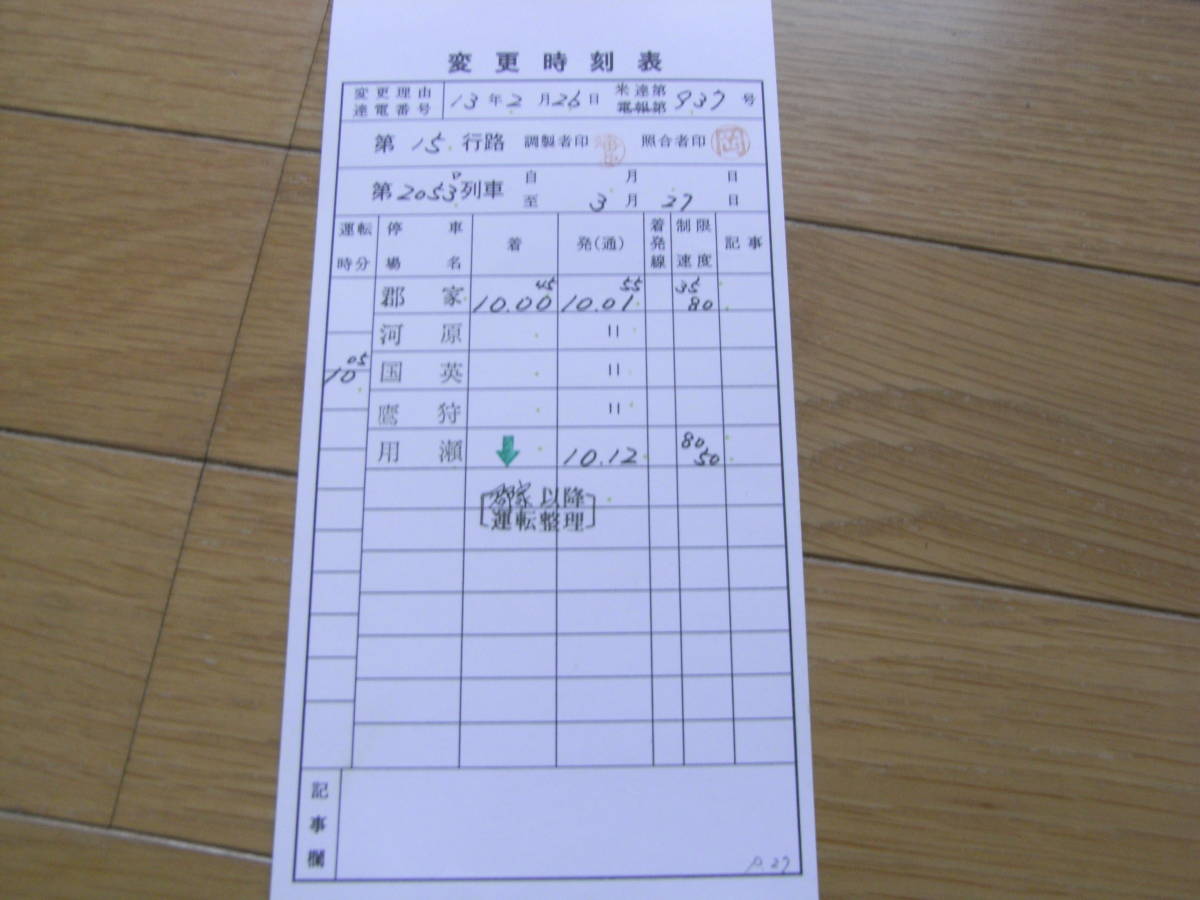 変更時刻表
変更理由
達電番号
13年2月26日
米達第
電報第
937号
第15行路 調製者印 照合者印 岡
第2053D列車
自 月 日
至 3月27日
運転時分 停車場名 着 発(通) 着発線 制限速度 記事
郡家 10.00 45 10.01 55 35 80
河原 〃
10 05 国英 〃
鷹狩 〃
用瀬 10.12 80 50
郡家以降
運転整理
記事欄